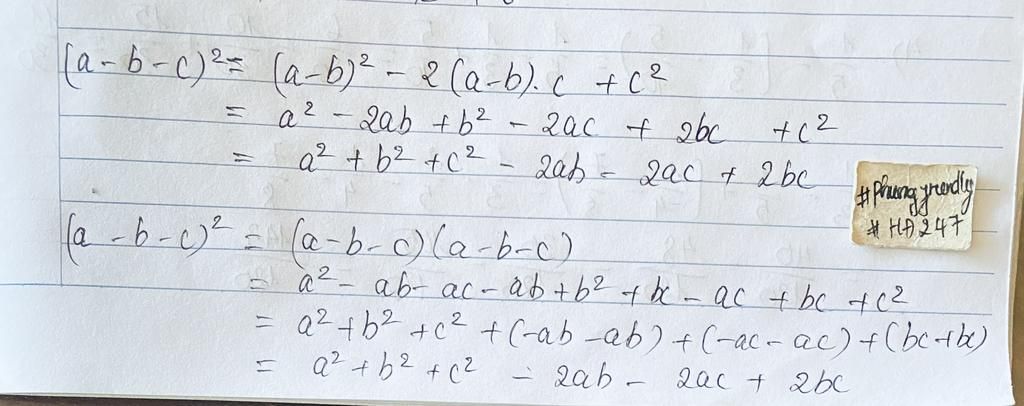 (a-b-c)² = (a-b)² - 2(a-b).c + c²
= a² - 2ab + b² - 2ac + 2bc + c²
= a² + b² + c² - 2ab - 2ac + 2bc
#Phungfrendly
# HA247
(a-b-c)² = (a-b-c)(a-b-c)
= a² - ab - ac - ab + b² + bc - ac + bc + c²
= a² + b² + c² + (-ab - ab) + (-ac - ac) + (bc + bc)
= a² + b² + c² - 2ab - 2ac + 2bc